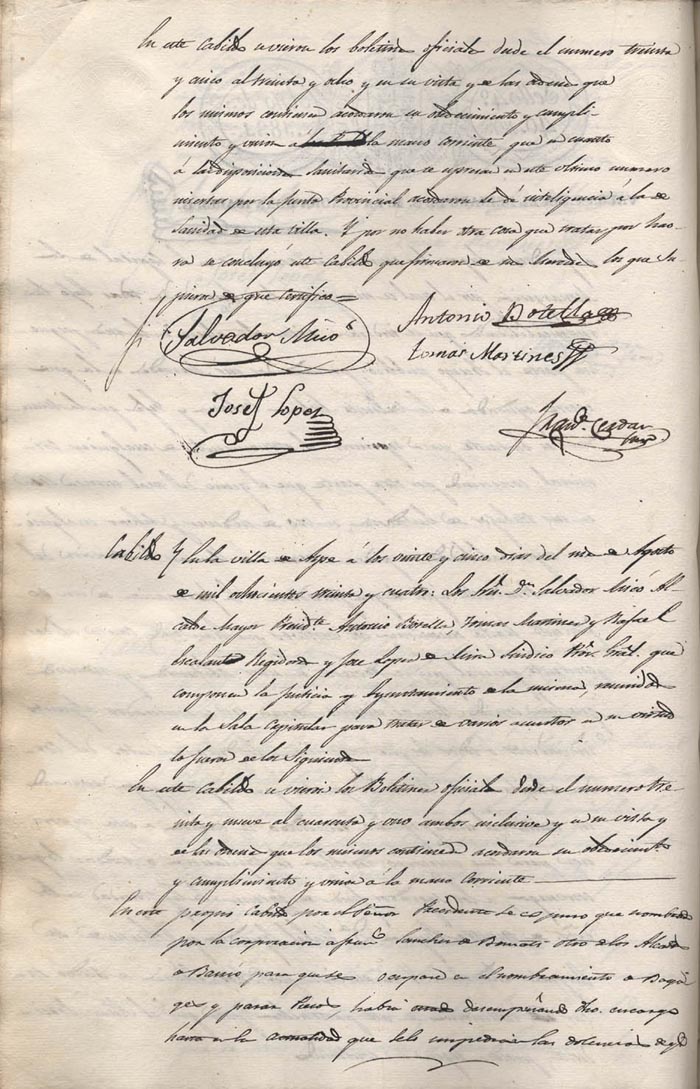 En este Cabildo se vieron los boletines oficiales desde el numero treinta
y cinco al treinta y ocho y en su vista y de las ordenes que
los mismos contienen acordaron su obedecimiento y cumpli-
miento y unir a la mano corriente que en cuanto
á las disposiciones sanitarias que se espresan en este ultimo numero
por la Junta Provincial acordaron se dé inteligencia á la de
Sanidad de esta villa. Y por no haber otra cosa que tratar por hao-
ra se concluyó este Cabildo que firmaron de sus Mercedes los que su
pieron de que certifico =
Salvador Micó
Antonio Botella
Tomas Martines
Josef Lopez
Cabildo En la villa de Aspe á los veinte y cinco dias del mes de Agosto
de mil ochocientos treinta y cuatro: Los Sres. Dn. Salvador Micó Al-
calde Mayor Presidte. Antonio Botella, Tomas Martinez y Rafael
Escalante Regidores y Jose Lopez de Sindico Pror. Gral. que
componen la Justicia y Ayuntamiento de la misma, reunidos
en la Sala Capitular para tratar de varios asuntos en su virtud
lo fueron de los Siguientes
En este Cabildo se vieron los Boletines oficiales desde el numero tre-
inta y nueve al cuarenta y ambos inclusive y en su vista y
de las ordenes que los mismos contienen acordaron su obedecimiento
y cumplimiento y unir á la mano corriente
En este propio Cabildo por el Señor Presidente se espuso que nombrado
por la corporacion á Sanchez de otro de los Alcaldes
de Barrio para que se ocupara en el nombramiento de Baga
ges y habia desempeñando dho. encargo
hasta en la actualidad que le impedian las dolencias de qe.